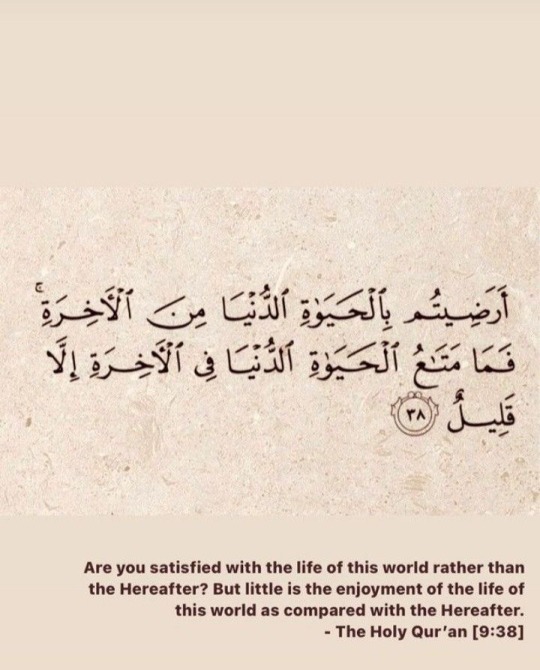 أَرَضِيتُم بِٱلْحَيَوٰةِ ٱلدُّنْيَا مِنَ ٱلْأَخِرَةِ ۚ
فَمَا مَتَـٰعُ ٱلْحَيَوٰةِ ٱلدُّنْيَا فِى ٱلْأَخِرَةِ إِلَّا
قَلِيلٌ ٣٨
Are you satisfied with the life of this world rather than
the Hereafter? But little is the enjoyment of the life of
this world as compared with the Hereafter.
- The Holy Qur’an [9:38]